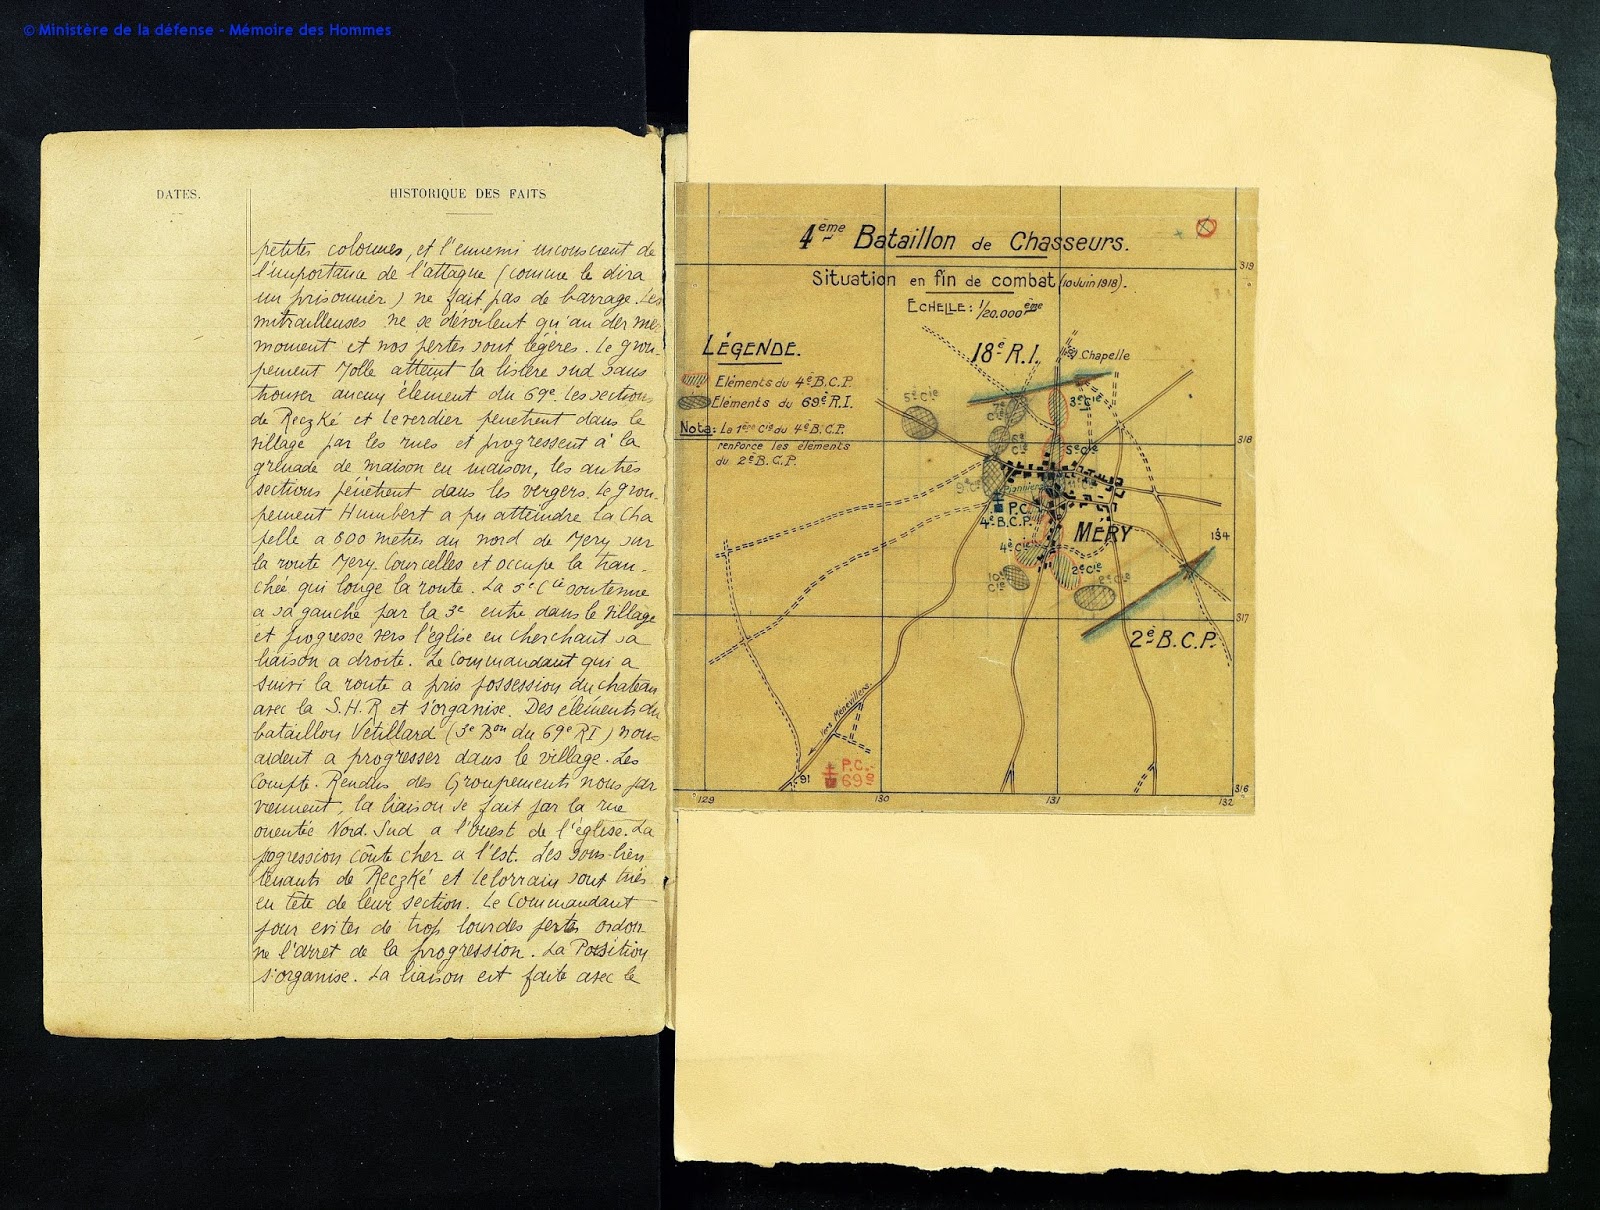 © Ministère de la défense - Mémoire des Hommes
DATES.
HISTORIQUE DES FAITS
petites colonnes, et l'ennemi inconscient de
l'importance de l'attaque (comme le dira
un prisonnier) ne fait pas de barrage. Les
mitrailleuses ne se dévoilent qu'au der me
moment et nos pertes sont légères. Le grou-
pement Jolle atteint la lisière sud sans
trouver aucun élément du 69e. Les sections
de Reczké et Leverdier penetrent dans le
village par les rues et progressent à la
grenade de maison en maison, les autres
sections pénètrent dans les vergers. Le grou-
pement Humbert a pu atteindre la Cha
pelle a 800 metres au nord de Mery sur
la route Mery. Courcelles et occupe la tran-
chée qui longe la route. La 5e Cie soutenue
a sa gauche par la 3e entre dans le village
et progresse vers l'église en cherchant sa
liaison a droite. Le Commandant qui a
suivi la route a pris possession du chateau
avec la S.H.R et s'organise. Des éléments du
bataillon Vetillard (3e Bon du 69e RI) nous
aident a progresser dans le village. Les
Compte. Rendus des Groupements nous par
viennent, la liaison se fait par la rue
orientée Nord. Sud a l'ouest de l'église. La
pogression coûte cher a l'Est. Les sous-lieu
tenants de Reczké et Lelorrain sont tués
en tête de leur section. Le Commandant
pour eviter de trop lourdes pertes ordon
ne l'arret de la progression. La Position
s'organise. La liaison est faite avec le
4ème Bataillon de Chasseurs.
Situation en fin de combat (10 Juin 1918).
ECHELLE: 1/20.000ème
319
LÉGENDE.
Eléments du 4è B.C.P.
Eléments du 69è R.I.
Nota: La 1ère Cie du 4è B.C.P.
renforce les éléments
du 2è B.C.P.
18è R.I.
Chapelle
5è Cie
7è Cie
3è Cie
318
6è Cie
5è Cie
9è Cie
Pionniers
P.C.
4è B.C.P.
MÉRY
134
4è Cie
10è Cie
2è Cie
317
2è B.C.P.
vers Ménévillers.
91
P.C.
69è
316
129
130
131
132